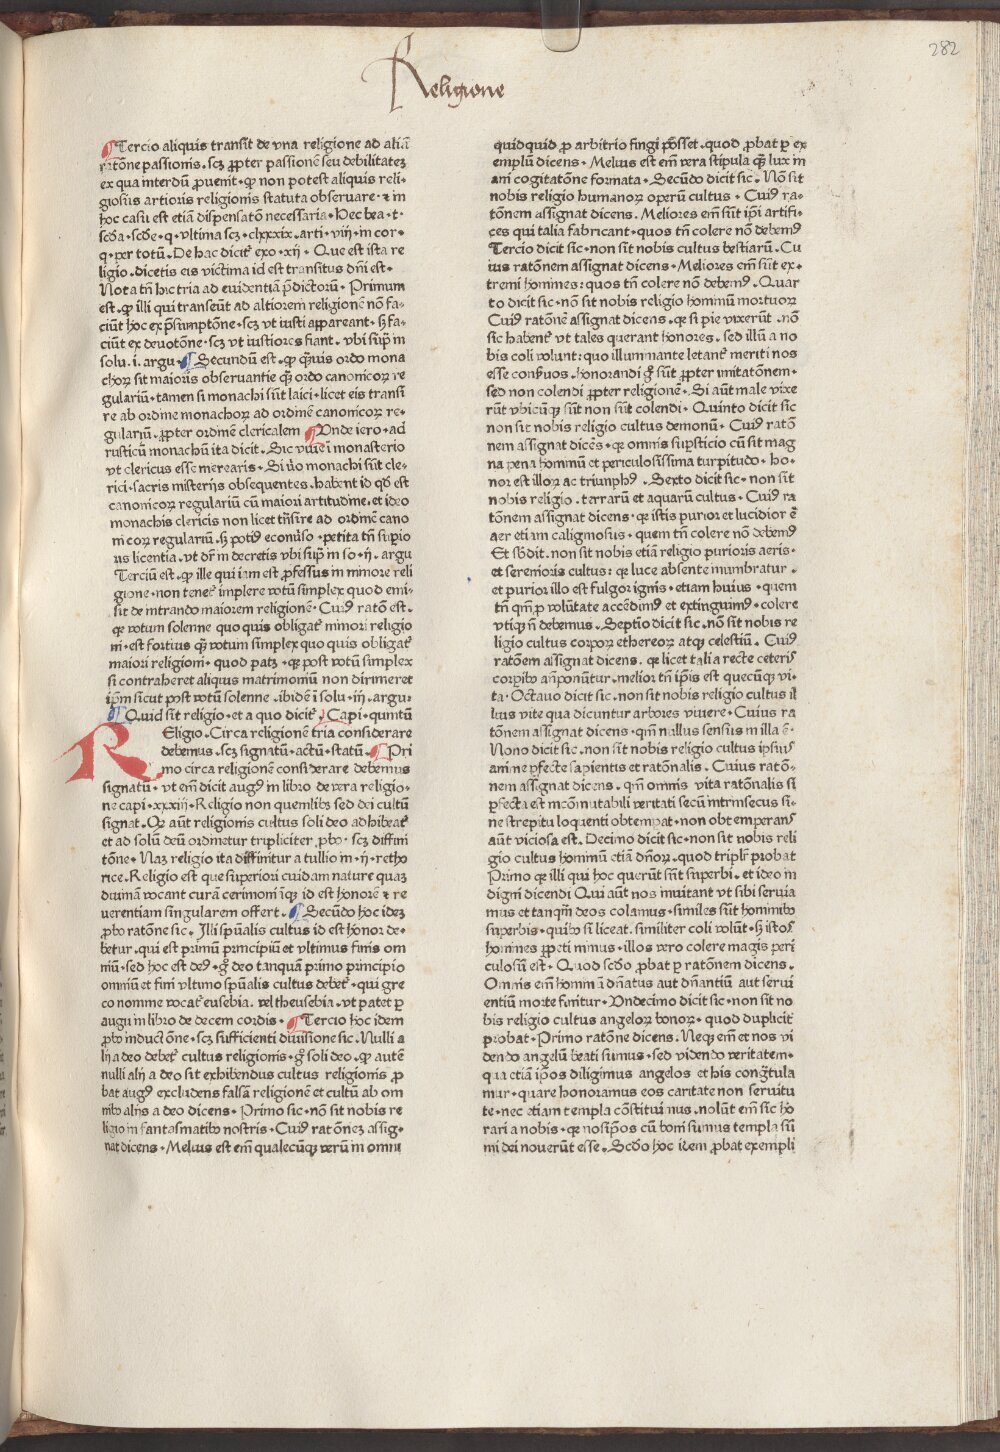 282
Religione
¶Tercio aliquis transit de vna religione ad aliã
ratõne passionis. scz ꝓpter passionẽ seu debilitatez
ex qua interdũ ꝓuenit. ꝙ non potest aliquis reli-
giosus artioris religionis statuta obseruare. ⁊ in
hoc casu est etiã dispensatõ necessaria. Hec bea. t.
scda. scde. q. vltima scz. clxxxix. arti. viij. in cor.
q. per totũ. De hac dicit᷑ exo. xij. Que est ista re
ligio. dicetis eis victima id est transitus dñi est.
Nota tñ hic tria ad euidentiã p̃dictorũ. Primum
est. ꝙ illi qui transeũt ad altiorem religionẽ nõ fa-
ciũt hoc ex p̃sumptõne. scz vt iusti appareant. sꝫ fa-
ciũt ex deuotõne. scz vt iustiores fiant. vbi sup̃ in
solu. i. argu. ¶Secundũ est. ꝙ q̃uis ordo mona
choꝝ sit maioris obseruantie q̃ ordo canonicoꝝ re
gulariũ. tamen si monachi sũt laici. licet eis transi
re ab ordine monachoꝝ ad ordinẽ canonicoꝝ re-
gulariũ. ꝓpter ordinẽ clericalem ¶Vnde iero. ad
rusticũ monachũ ita dicit. Sic viue ĩ monasterio
vt clericus esse merearis. Si v̉o monachi sũt cle-
rici. sacris misterijs obsequentes. habent id qd̃ est
canonicoꝝ regulariũ cũ maiori artitudine. et ideo
monachis clericis non licet trñsire ad ordinẽ cano
nicoꝝ regulariũ. sꝫ potiꝰ econuerso. petita tñ supio
ris licentia. vt dr̃ in decretis vbi sup̃ in so. ij. argu
Terciũ est. ꝙ ille qui iam est ꝓfessus in minore reli
gione. non tenet᷑ implere votũ simplex quod emi-
sit de intrando maiorem religionẽ. Cuiꝰ ratõ est.
qꝛ votum solenne quo quis obligat᷑ minori religio
ni. est fortius q̃ votum simplex quo quis obligat᷑
maiori religioni. quod patꝫ. qꝛ post votũ simplex
si contraheret aliquis matrimoniũ non dirimeret
ip̃m sicut post votũ solenne. ibidẽ ĩ solu. iij. argu.
¶Quid sit religio. et a quo dicit᷑. Capi. quintũ
REligio. Circa religionẽ tria considerare
debemus. scz signatũ. actũ. statũ. ¶Pri
mo circa religionẽ considerare debemus
signatũ. vt em̃ dicit augꝰ in libro de vera religio-
ne capi. xxxiij. Religio non quemlibꝫ sed dei cultũ
signat. Qꝫ aũt religionis cultus soli deo adhibeat᷑
et ad solũ deũ ordinetur tripliciter ꝓbo. scz diffini
tõne. Naz religio ita diffinitur a tullio in. ij. retho
rice. Religio est que superiori cuidam nature quaz
diuinã vocant curã cerimoniãqꝫ id est honorẽ ⁊ re
uerentiam singularem offert. ¶Secũdo hoc idez
ꝓbo ratõne sic. Illi spũalis cultus id est honor de-
betur. qui est primũ principiũ et vltimus finis om
niũ. sed hoc est deꝰ. gͦ deo tanquã primo principio
omniũ et fini vltimo spũalis cultus debet᷑. qui gre
co nomine vocat᷑ eusebia. vel theusebia. vt patet p̱
augu in libro de decem cordis. ¶Tercio hoc idem
ꝓbo inductõne. scz sufficienti diuisione sic. Nulli a
lij a deo debet᷑ cultus religionis. gͦ soli deo. ꝙ autẽ
nulli alij a deo sit exhibendus cultus religionis ꝓ
bat augꝰ excludens falsã religionẽ et cultũ ab om
nibꝰ alijs a deo dicens. Primo sic. nõ sit nobis re
ligio in fantasmatibꝰ nostris. Cuiꝰ ratõnez assig-
nat dicens. Melius est em̃ qualecũqꝫ verũ in omni
quidquid ꝓ arbitrio fingi põsset. quod ꝓbat p̱ ex
emplũ dicens. Melius est em̃ vera stipula q̃ lux in
ani cogitatõne formata. Secũdo dicit sic. Nõ sit
nobis religio humanoꝝ operũ cultus. Cuiꝰ ra-
tõnem assignat dicens. Meliores em̃ sũt ip̃i artifi-
ces qui talia fabricant. quos tñ colere nõ debemꝰ
Tercio dicit sic. non sit nobis cultus bestiarũ. Cu
ius ratõnem assignat dicens. Meliores em̃ sũt ex-
tremi homines: quos tñ colere nõ debemꝰ. Quar
to dicit sic. nõ sit nobis religio hominũ mortuoꝝ
Cuiꝰ ratõnẽ assignat dicens. qꝛ si pie vixerũt. nõ
sic habent᷑ vt tales querant honores. sed illũ a no
bis coli volunt: quo illuminante letant᷑ meriti nos
esse conseruos. honorandi gͦ sũt ꝓpter imitatõnem.
sed non colendi ꝓpter religionẽ. Si aũt male vixe
rũt vbicũqꝫ sũt non sũt colendi. Quinto dicit sic
non sit nobis religio cultus demonũ. Cuiꝰ ratõ
nem assignat dicẽs. qꝛ omnis supsticio cũ sit mag
na pena hominũ et periculosissima turpitudo. ho-
nor est illoꝝ ac triumphꝰ. Sexto dicit sic. non sit
nobis religio. terrarũ et aquarũ cultus. Cuiꝰ ra
tõnem assignat dicens. qꝛ istis purior et lucidior ẽ
aer etiam caliginosus. quem tñ colere nõ debemꝰ
Et sb̃dit. non sit nobis etiã religio purioris aeris.
et serenioris cultus: qꝛ luce absente inumbratur.
et purior illo est fulgor ignis. etiam huius. quem
tñ qm̃ ꝓ volũtate accẽdimꝰ et extinguimꝰ. colere
vtiqꝫ ñ debemus. Septio dicit sic. nõ sit nobis re
ligio cultus corpoꝝ ethereoꝝ atqꝫ celestiũ. Cuiꝰ
ratõem assignat dicens. qꝛ licet talia recte ceteris
corpibꝰ añponũtur. melior tñ ip̃is est quecũqꝫ vi-
ta. Octauo dicit sic. non sit nobis religio cultus il
lius vite qua dicuntur arbores viuere. Cuius ra
tõnem assignat dicens. qm̃ nullus sensus in illa ẽ.
Nono dicit sic. non sit nobis religio cultus ipsius
anime ꝑfecte sapientis et ratõnalis. Cuius ratõ-
nem assignat dicens. qm̃ omnis vita ratõnalis si
ꝑfecta est incõmutabili veritati secũ intrinsecus si-
ne strepitu loquenti obtempat. non obtemperans
aũt viciosa est. Decimo dicit sic. non sit nobis reli
gio cultus hominũ etiã dñoꝝ. quod triplr̃ probat
Primo qꝛ illi qui hoc querũt sũt superbi. et ideo in
digni dicendi Qui aũt nos inuitant vt sibi seruia
mus et tanqm̃ deos colamus. similes sũt hominibꝰ
superbis. quibꝰ si liceat. similiter coli volũt. sꝫ istos
homines ꝑpeti minus. illos vero colere magis peri
culosũ est. Quod scdo ꝓbat p̱ ratõnem dicens.
Omnis em̃ hominũ dñatus aut dñantiũ aut serui
entiũ morte finitur. Vndecimo dicit sic. non sit no
bis religio cultus angeloꝝ bonoꝝ. quod duplicit᷑
probat. Primo ratõne dicens. Neqꝫ em̃ et nos vi
dendo angelũ beati sumus. sed videndo veritatem.
qua etiã ip̃os diligimus angelos et his congr̃tula
mur. quare honoramus eos caritate non seruitu
te. nec etiam templa cõstituimus. nolũt em̃ sic ho
rari a nobis. qꝛ nosip̃os cũ boni sumus templa sũ
mi dei nouerũt esse. Scdo hoc idem ꝓbat exempli